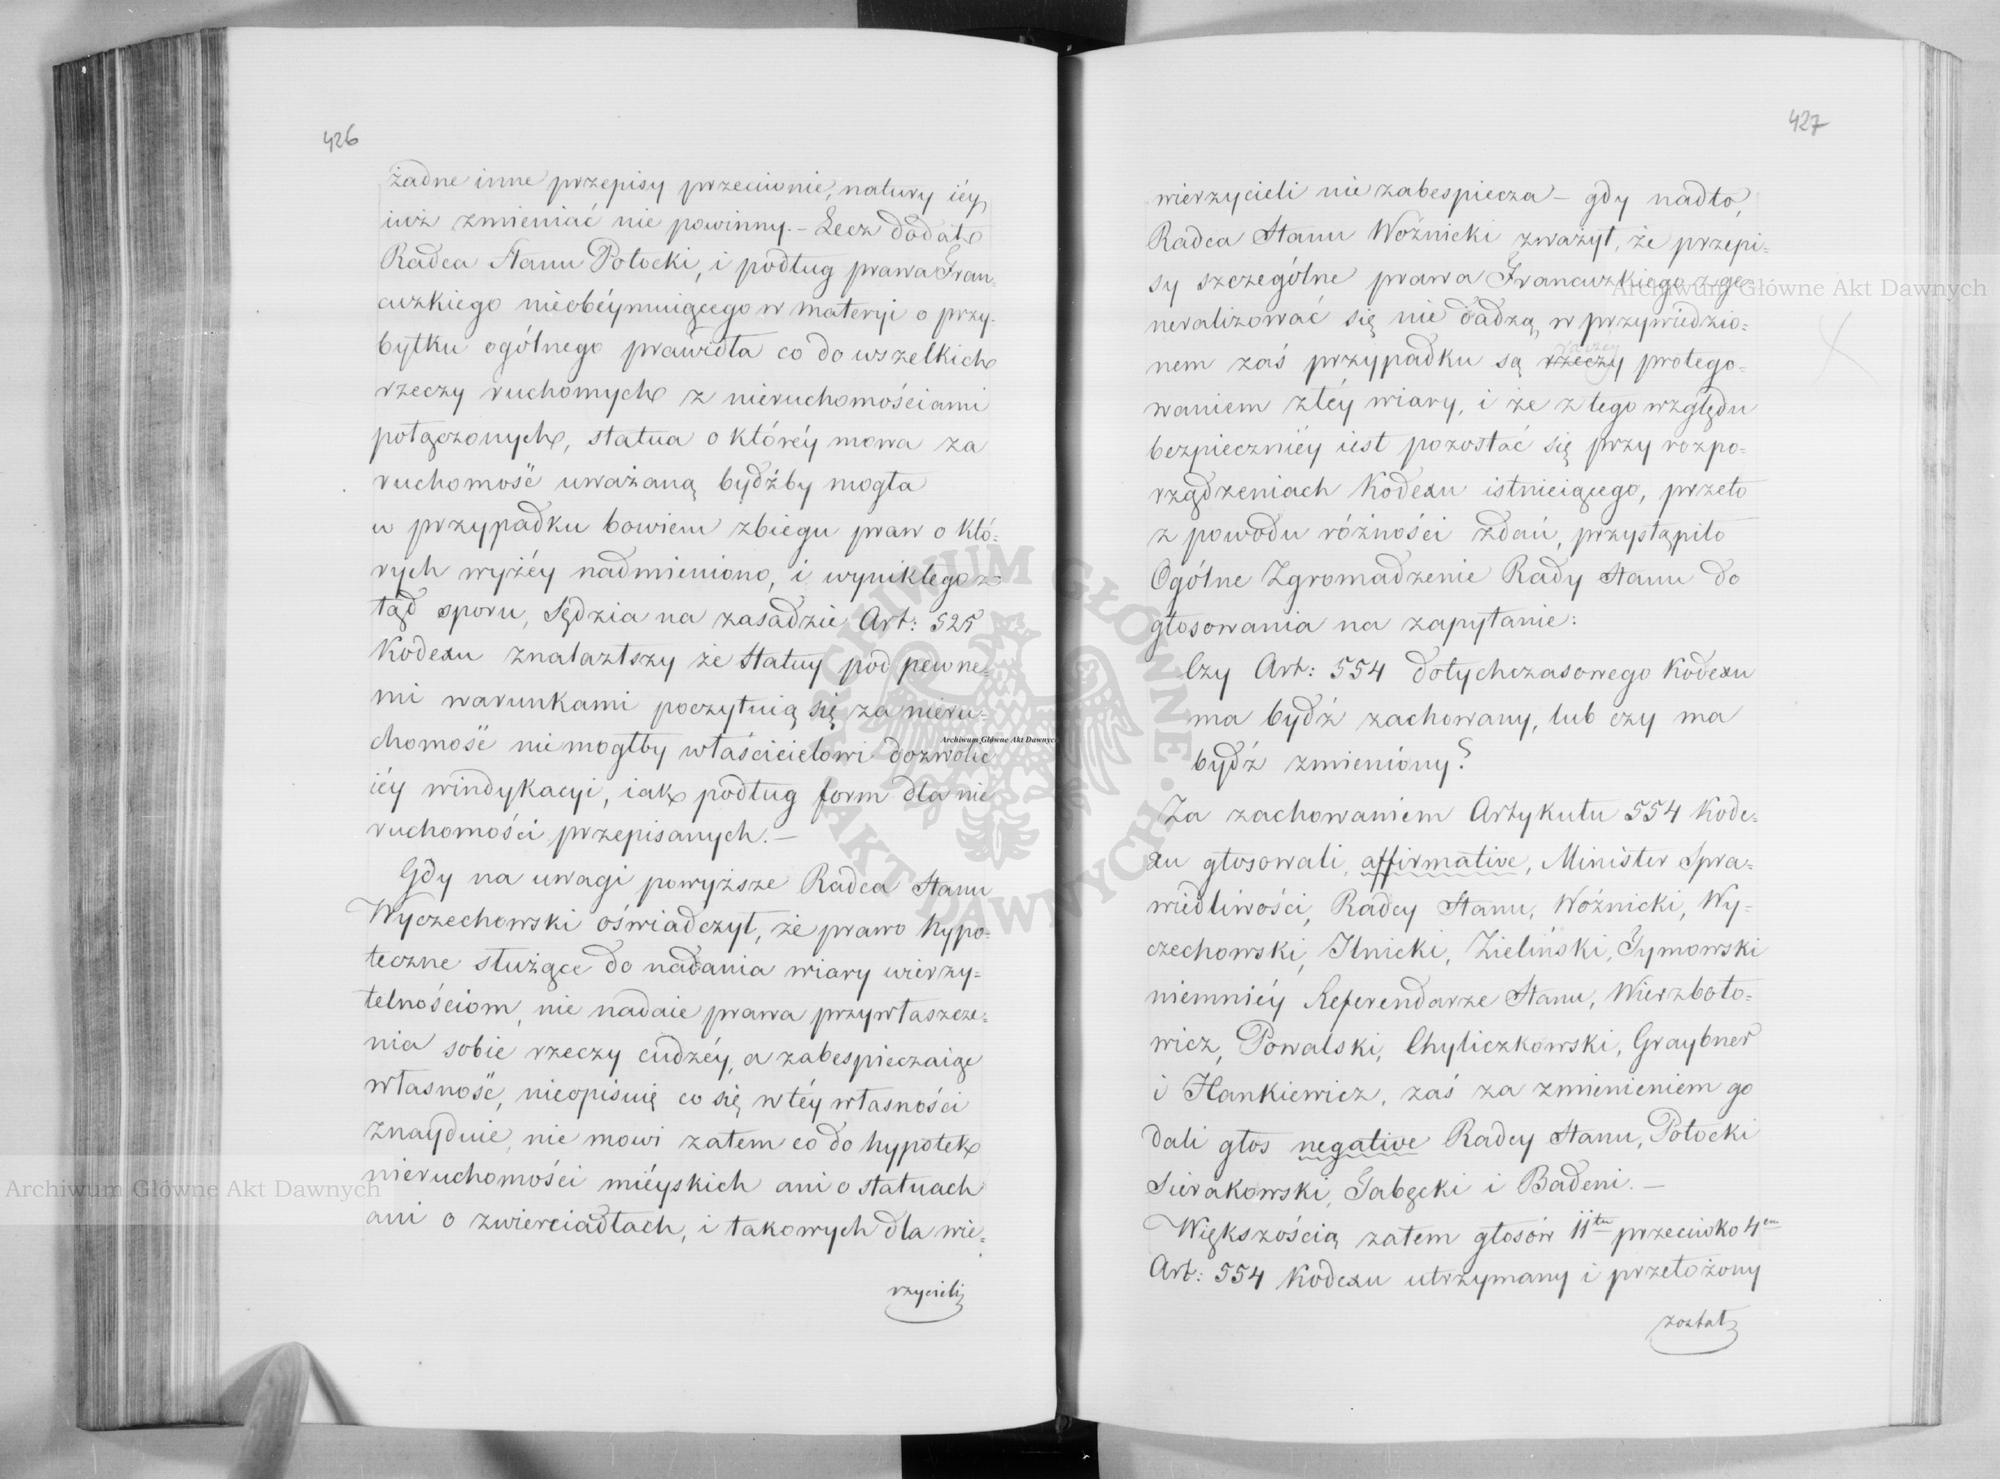 426
żadne inne przepisy przeciwnie, natury iéy
iuż zmieniać nie powinny. – Lecz dodał
Radca Stanu Potocki, i podług prawa Fran-
cuzkiego nieobéymuiącego w materyi o przy-
bytku ogólnego prawidła co do wszelkich
rzeczy ruchomych z nieruchomościami
połączonych, statua o któréy mowa za
ruchomość uważaną bydźby mogła
w przypadku bowiem zbiegu praw o któ=
rych wyżéy nadmieniono, i wynikłego z
tąd sporu, Sędzia na zasadzie Art: 525
Kodexu znalazłszy że Statuy pod pewne=
mi warunkami poczytuią się za nieru=
chomość nie mogłby właścicielowi dozwolić
iéy windykacyi, iak podług form dla nie
ruchomości przepisanych. –
Gdy na uwagi powyższe Radca Stanu
Wyczechowski oświadczył, że prawo hypo=
teczne służące do nadania wiary wierzy=
telnościom, nie nadaie prawa przywłaszcze=
nia sobie rzeczy cudzéy, a zabespieczaiąc
własność, nieopisuię co się w téy własności
znayduie, nie mowi zatem co do hypotek
nieruchomości miéyskich ani o statuach
ani o zwierciadłach, i takowych dla wie=
rzycieli
427
wierzycieli nie zabespiecza – gdy nadto,
Radca Stanu Woźnicki zważył, że przepi=
sy szczególne prawa Francuzkiego zge=
neralizować się nie dadzą, w przywiedzio=
nem zaś przypadku są rzeczy protego=
raczey
waniem złéy wiary, i że z tego względu
bezpieczniéy iest pozostać się przy rozpo=
rządzeniach Kodexu istnieiącego, przeto
z powodu różności zdań, przystąpiło
Ogólne Zgromadzenie Rady Stanu do
głosowania na zapytanie:
Czy Art: 554 dotychczasowego Kodexu
ma bydź zachowany, lub czy ma
bydź zmieniony?
Za zachowaniem Artykułu 554 Kode=
xu głosowali, affirmative, Minister Spra=
wiedliwości, Radcy Stanu, Woźnicki, Wy=
czechowski, Ilnicki, Zieliński, Tymowski
niemniéy Referendarze Stanu, Wierzboło=
wicz, Powalski, Chyliczkowski, Graybner
i Hankiewicz, zaś za zmienieniem go
dali głos negative Radcy Stanu, Potocki
Sierakowski, Gabęcki i Badeni. –
Większością zatem głosów 11tu przeciwko 4em
Art: 554 Kodexu utrzymany i przełożony
został
Archiwum Główne Akt Dawnych
Archiwum Główne Akt Dawnych
Archiwum Główne Akt Dawnych
ARCHIWUM GŁÓWNE AKT DAWNYCH